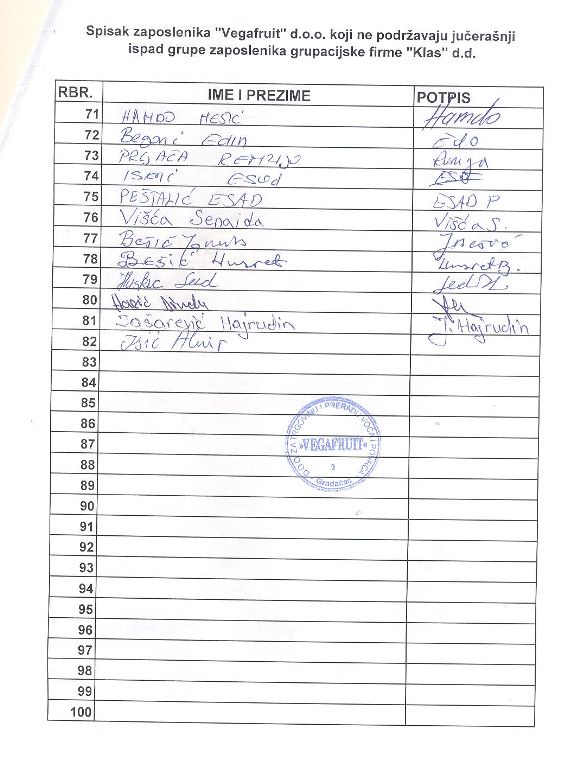 Spisak zaposlenika "Vegafruit" d.o.o. koji ne podržavaju jučerašnji
ispad grupe zaposlenika grupacijske firme "Klas" d.d.
RBR. IME I PREZIME POTPIS
71 HAMDO MESIĆ Hamdo
72 Begović Edin Edo
73 PRLJAČA REMZIJO
74 ISEKIĆ ESED
75 PEŠTALIĆ ESAD ESAD P
76 Višća Senaida Višća S.
77 Bešić
78 BEŠIĆ Husret Husret B.
79
80
81 Šašarević Hajrudin Hajrudin
82 Isić Almir
83
84
85
86
87
88
89
90
91
92
93
94
95
96
97
98
99
100
D.O.O. ZA TRGOVINU I PRERADU VOĆA I POVRĆA
»VEGAFRUIT«
2
Gradačac